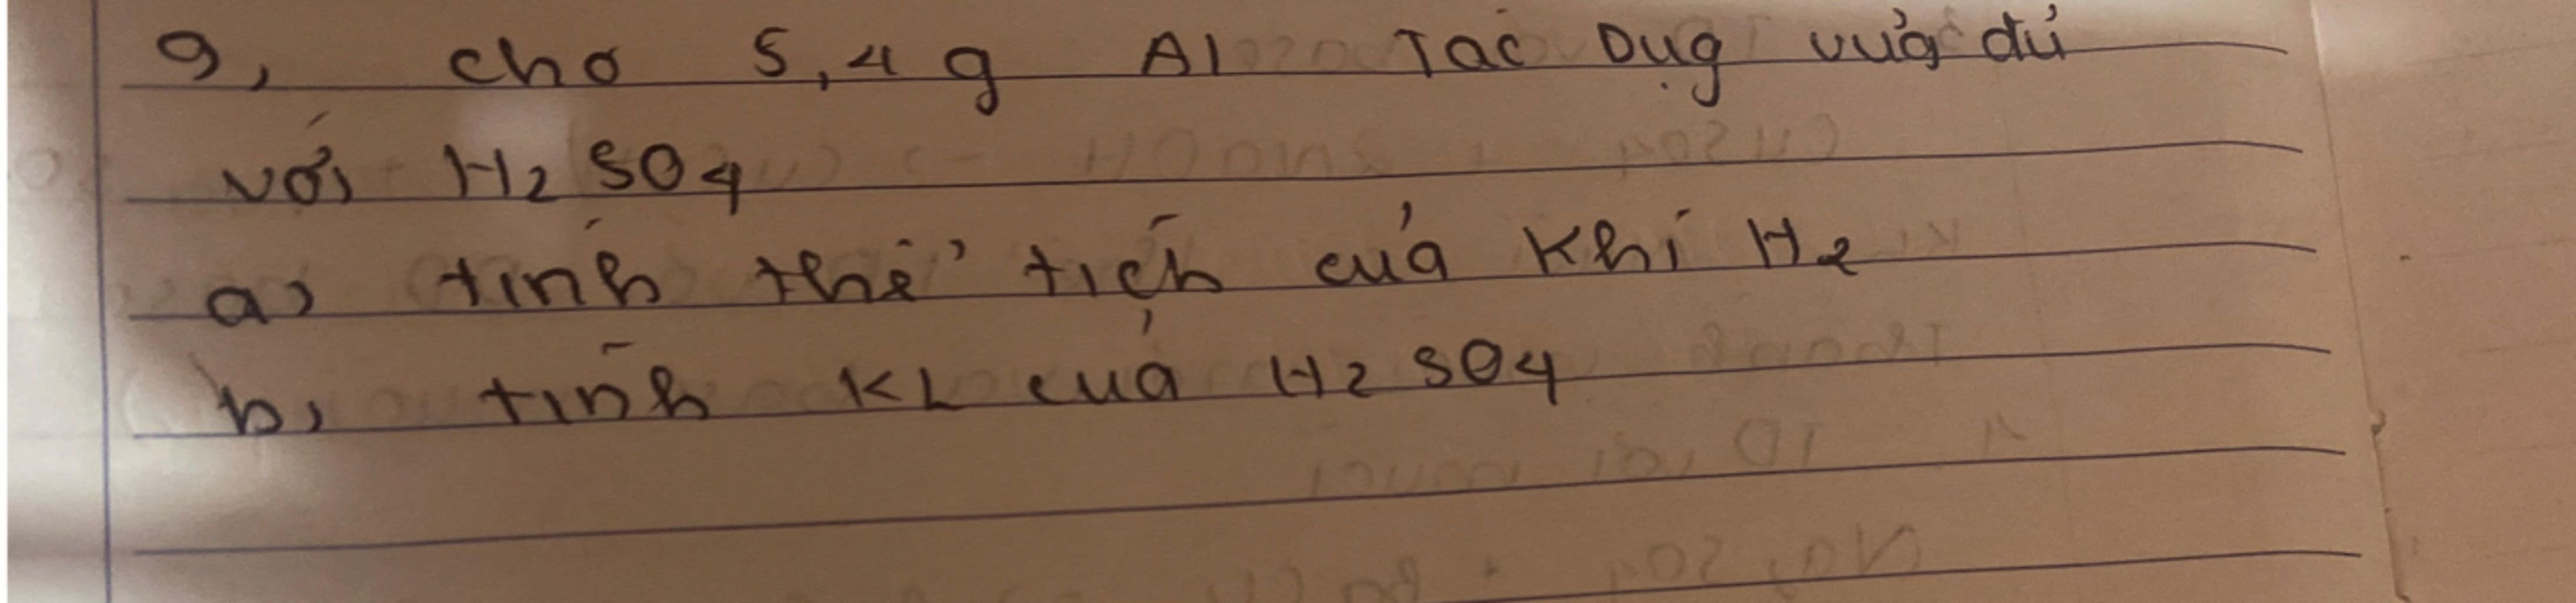 9, cho 5,4 g Al Tác Dụg vừa đủ
với H2SO4
a, tính thể tích của khí H2
b, tính KL của H2SO4